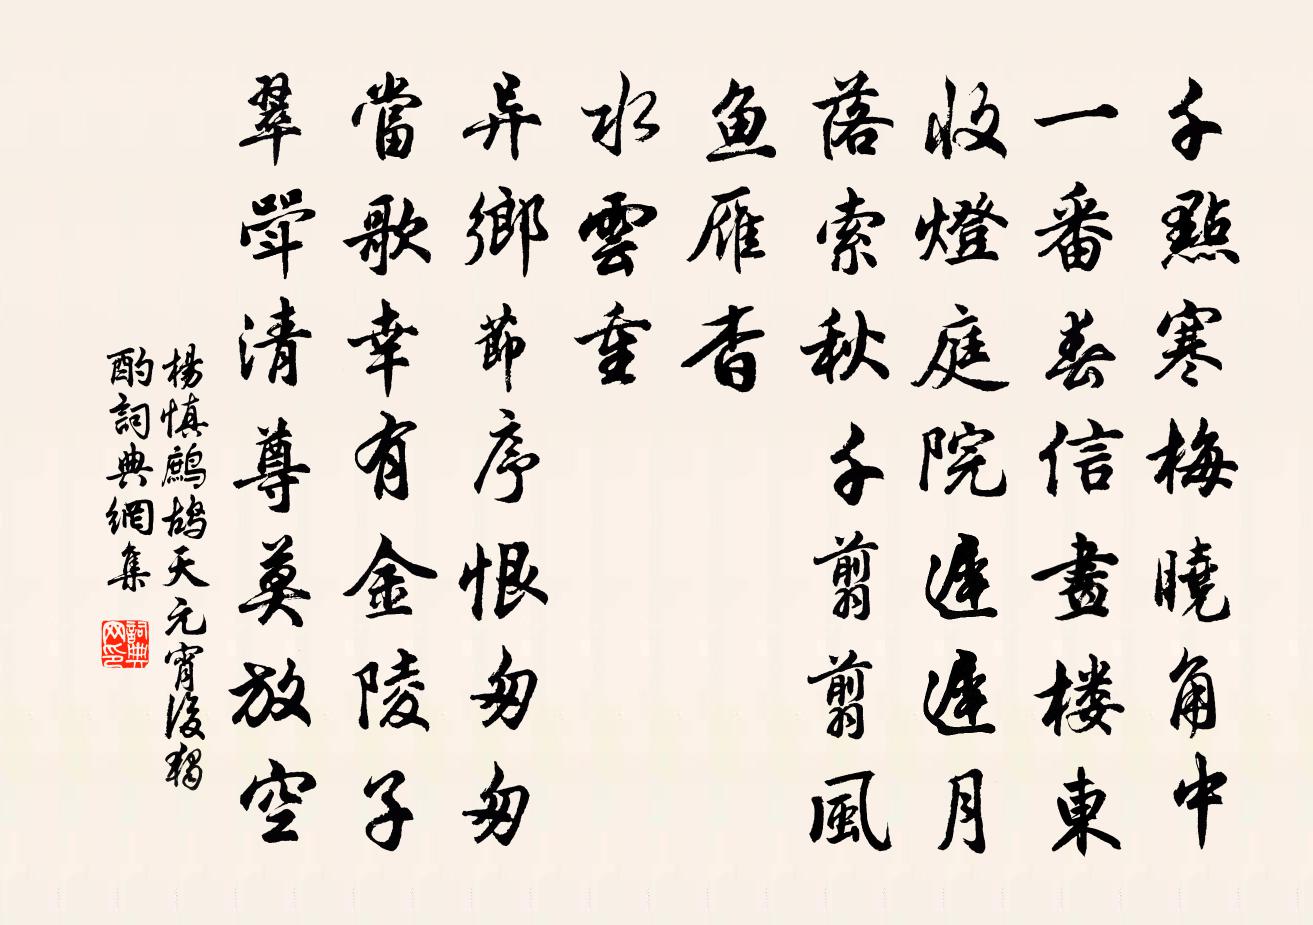 千點寒梅曉角中
一番春信畫楼東
收燈庭院遲遲月
落索秋千翦翦風
魚雁杳
水雲重
异鄉節序恨匆匆
當歌幸有金陵子
翠斝清尊莫放空
楊慎鷓鴣天元宵後獨
酌詞典網集
詞典网印